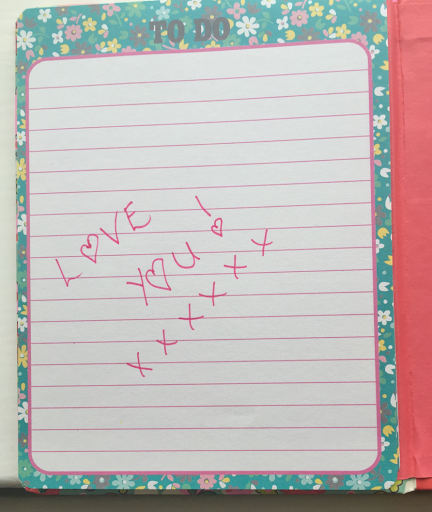 TO DO
LOVE
YOU!
x x x x x x